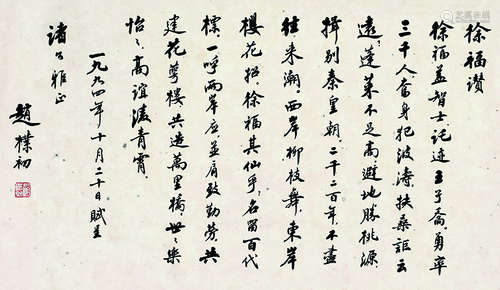 徐福讚
徐福蓋智士託迹王子喬勇率
三千人奮身犯波濤扶桑詎云
遠蓬萊不足高避地勝桃源
揖別秦皇朝二千二百年不盡
往來潮西岸柳枝舞東岸
櫻花招徐福其仙乎名留百代
標一呼兩岸應並肩致勤勞共
建花萼樓共造萬里橋世々樂
怡々高誼淩青霄
一九九四年十月二十日賦呈
諸公雅正
趙樸初